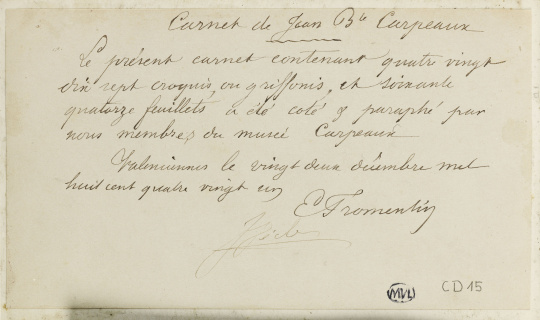 Carnet de Jean Bte Carpeaux
Le présent carnet contenant quatre vingt
dix sept croquis, ou griffonis, et soixante
quatorze feuillets a été coté & paraphé par
nous membres du musée Carpeaux
Valenciennes le vingt deux décembre mil
huit cent quatre vingt un
E Fromentin
MVL CD 15